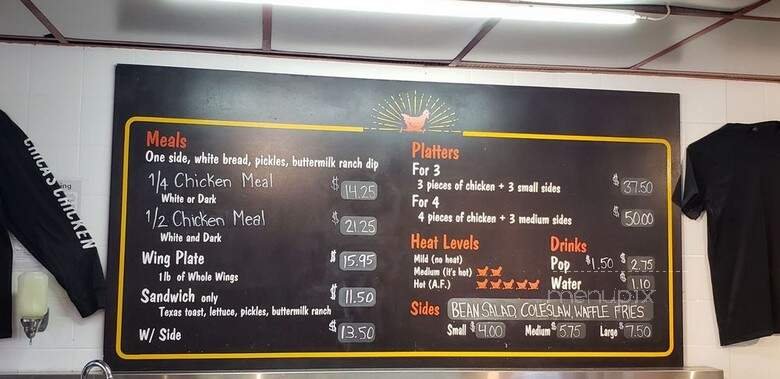 CHICA'S CHICKEN
Meals
One side, white bread, pickles, buttermilk ranch dip
1/4 Chicken Meal $ 14.25
White or Dark
1/2 Chicken Meal $ 21.25
White and Dark
Wing Plate $ 15.95
1lb of Whole Wings
Sandwich only $ 11.50
Texas toast, lettuce, pickles, buttermilk ranch
W/ Side $ 13.50
Platters
For 3
3 pieces of chicken + 3 small sides $ 37.50
For 4
4 pieces of chicken + 3 medium sides $ 50.00
Heat Levels
Mild (no heat)
Medium (It's hot)
Hot (A.F.)
Drinks
Pop $1.50 $ 2.75
Water $ 1.10
Sides BEAN SALAD, COLESLAW, WAFFLE FRIES
Small $ 4.00 Medium $ 5.75 Large $ 7.50
menupix